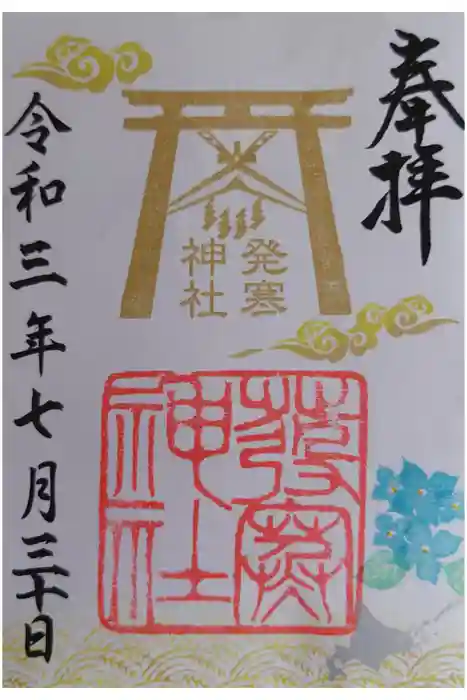 奉拝
発寒
神社
発寒
神社
令和三年七月三十日